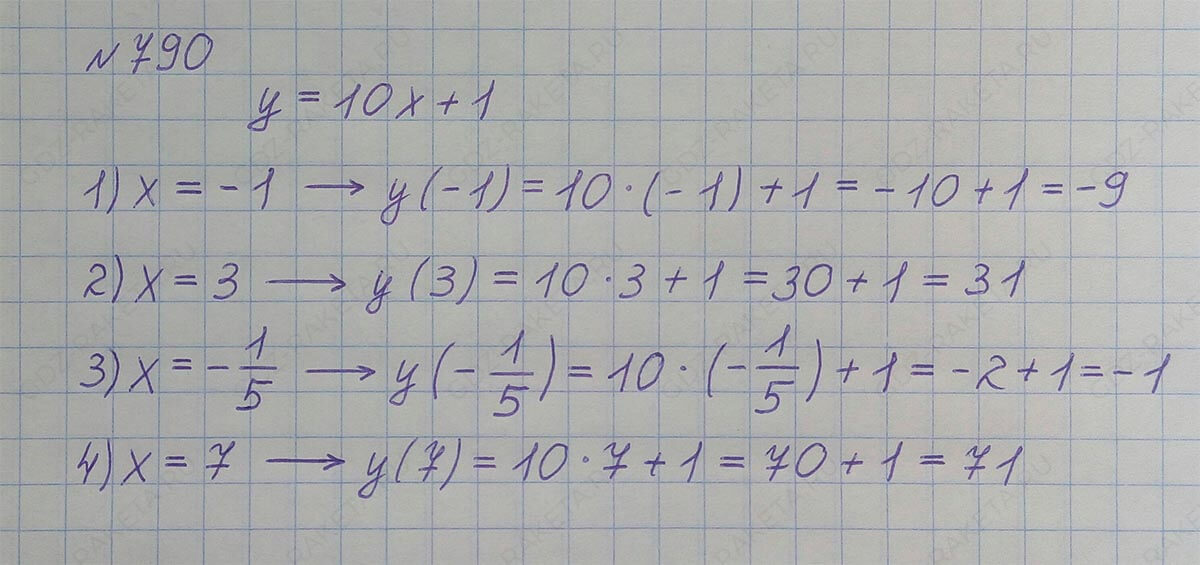 №790
y = 10x + 1
1) x = -1 → y(-1) = 10·(-1) + 1 = -10 + 1 = -9
2) x = 3 → y(3) = 10·3 + 1 = 30 + 1 = 31
3) x = -1/5 → y(-1/5) = 10·(-1/5) + 1 = -2 + 1 = -1
4) x = 7 → y(7) = 10·7 + 1 = 70 + 1 = 71
GDZ-RAKETA.RU